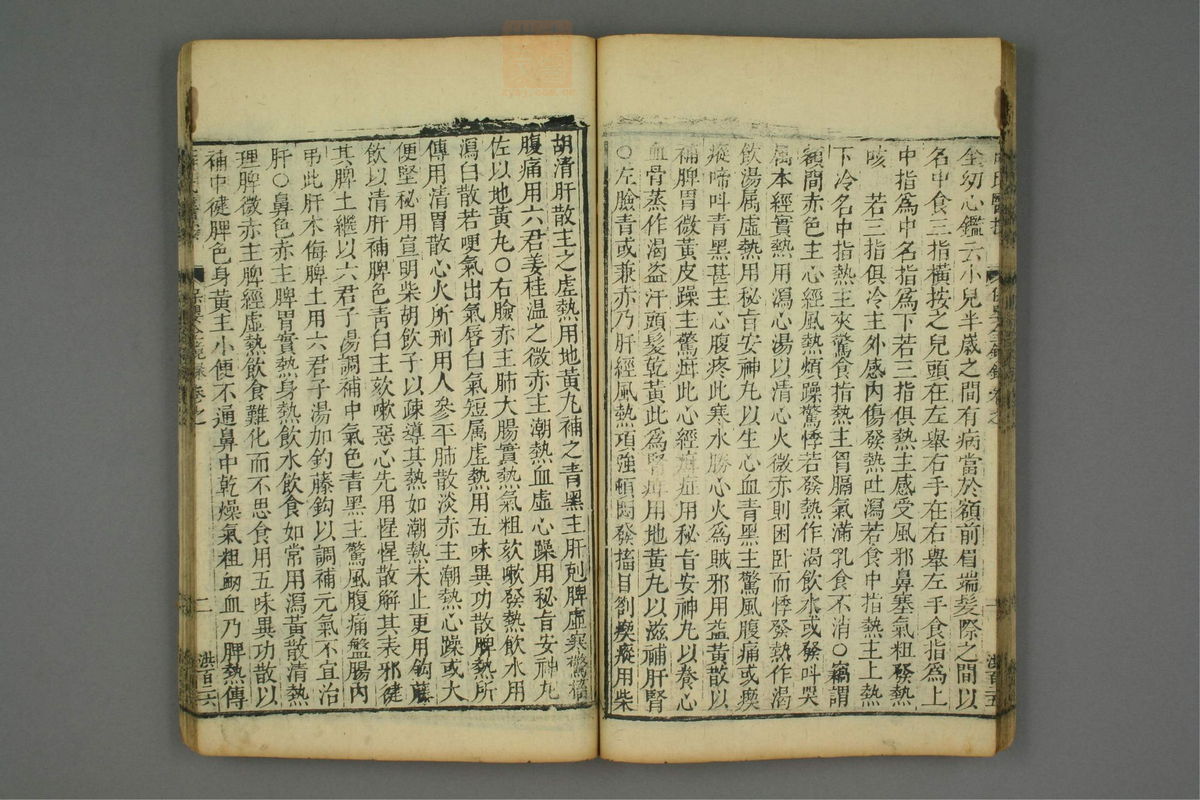 全幼心鑑云小兒半歲之間有病當於額前眉端髮際之間以
名中食三指橫按之兒頭在左舉右手在右舉左手食指爲上
中指爲中名指爲下若三指俱熱主感受風邪鼻塞氣粗發熱
咳　若三指俱冷主外感內傷發熱吐瀉若食中指熱主上熱
下冷名中指熱主夾驚食指熱主胃膈氣滿乳食不消○竊謂
額間赤色主心經風熱煩躁驚悸若發熱作渴飲水或發呌哭
属本經實熱用瀉心湯以清心火微赤則困卧而悸發熱作渴
飲湯属虛熱用秘旨安神丸以生心血青黑主驚風腹痛或瘈
瘲啼呌青黑甚主心腹疼此寒水勝心火爲賊邪用益黃散以
補脾胃微黃皮躁主驚疳此心經症用秘旨安神丸以養心
血骨蒸作渴盗汗頭髮乾黃此爲腎疳用地黃丸以滋補肝腎
○左臉青或兼赤乃肝經風熱項強頓悶發搐目劄瘈瘲用柴
胡清肝散主之虛熱用地黃丸補之青黑主肝剋脾虛寒驚搐
腹痛用六君姜桂温之微赤主潮熱血虛心躁用秘旨安神丸
佐以地黃丸○右臉赤主肺大腸實熱氣粗欬嗽發熱飲水用
瀉白散若哽氣出氣唇白氣短属虛熱用五味異功散脾熱所
傳用清胃散心火所刑用人參平肺散淡赤主潮熱心躁或大
便堅秘用宣明柴胡飲子以疎導其熱如潮熱未止更用鈎藤
飲以清肝補脾色青白主欬嗽惡心先用惺惺散解其表邪徤
其脾土繼以六君子湯調補中氣色青黑主驚風腹痛盤腸內
弔此肝木侮脾土用六君子湯加釣藤鈎以調補元氣不宜治
肝○鼻色赤主脾胃實熱身熱飲水飲食如常用瀉黃散清熱
理脾微赤主脾經虛熱飲食難化而不思食用五味異功散以
補中徤脾色身黃主小便不通鼻中乾燥氣粗衂血乃脾熱傳
二